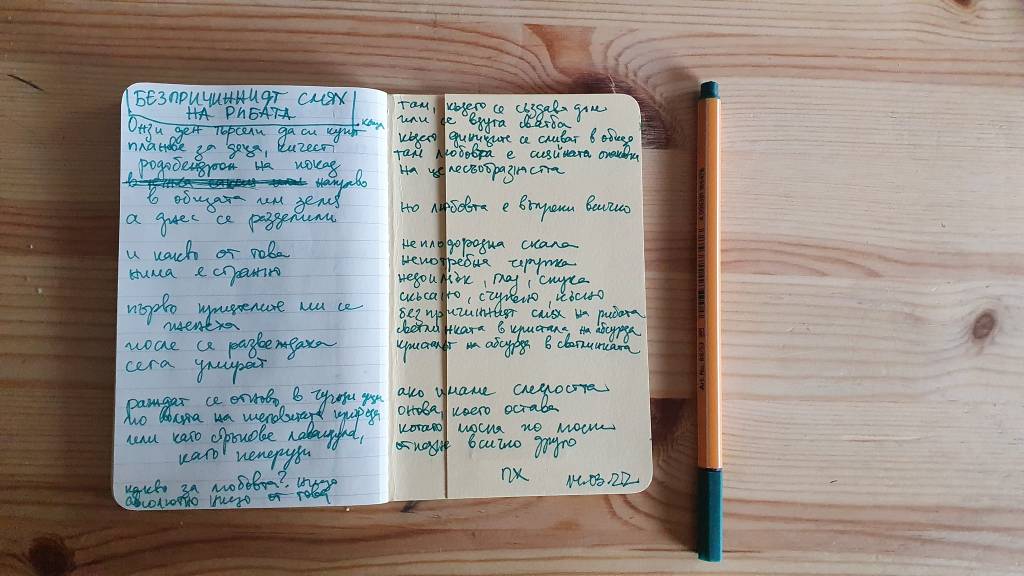 БЕЗПРИЧИННИЯТ СМЯХ
НА РИБАТА
Онзи ден търсели да си купят къща
планове за деца, вместо
рододендрон на покод
направо
в общата им земя
а днес се разделили
и какво от това
нима е странно
първо приятелите ми се
женеха
после се развеждаха
сега умират
раждат се отново в чужди деца
по волята на човешката природа
или като стръкове лавандула,
като пеперуди
какво за любовта? нищо
абсолютно нищо от това
там, където се създава дом
или се вдига сватба
където единиците се сливат в общо
там любовта е
на целесъобразността
но любовта е въпреки всичко
неплодородна скала
непотребна черупка
недоимък, глад, скука
скъсано, счупено, късно
безпричинният смях на рибата
светлинката в кристала на абсурда
кристалът на абсурда в светлинката
ако имаме смелостта
онова, което остава
когато после по
отпадне всичко друго
ПХ 14.03.22